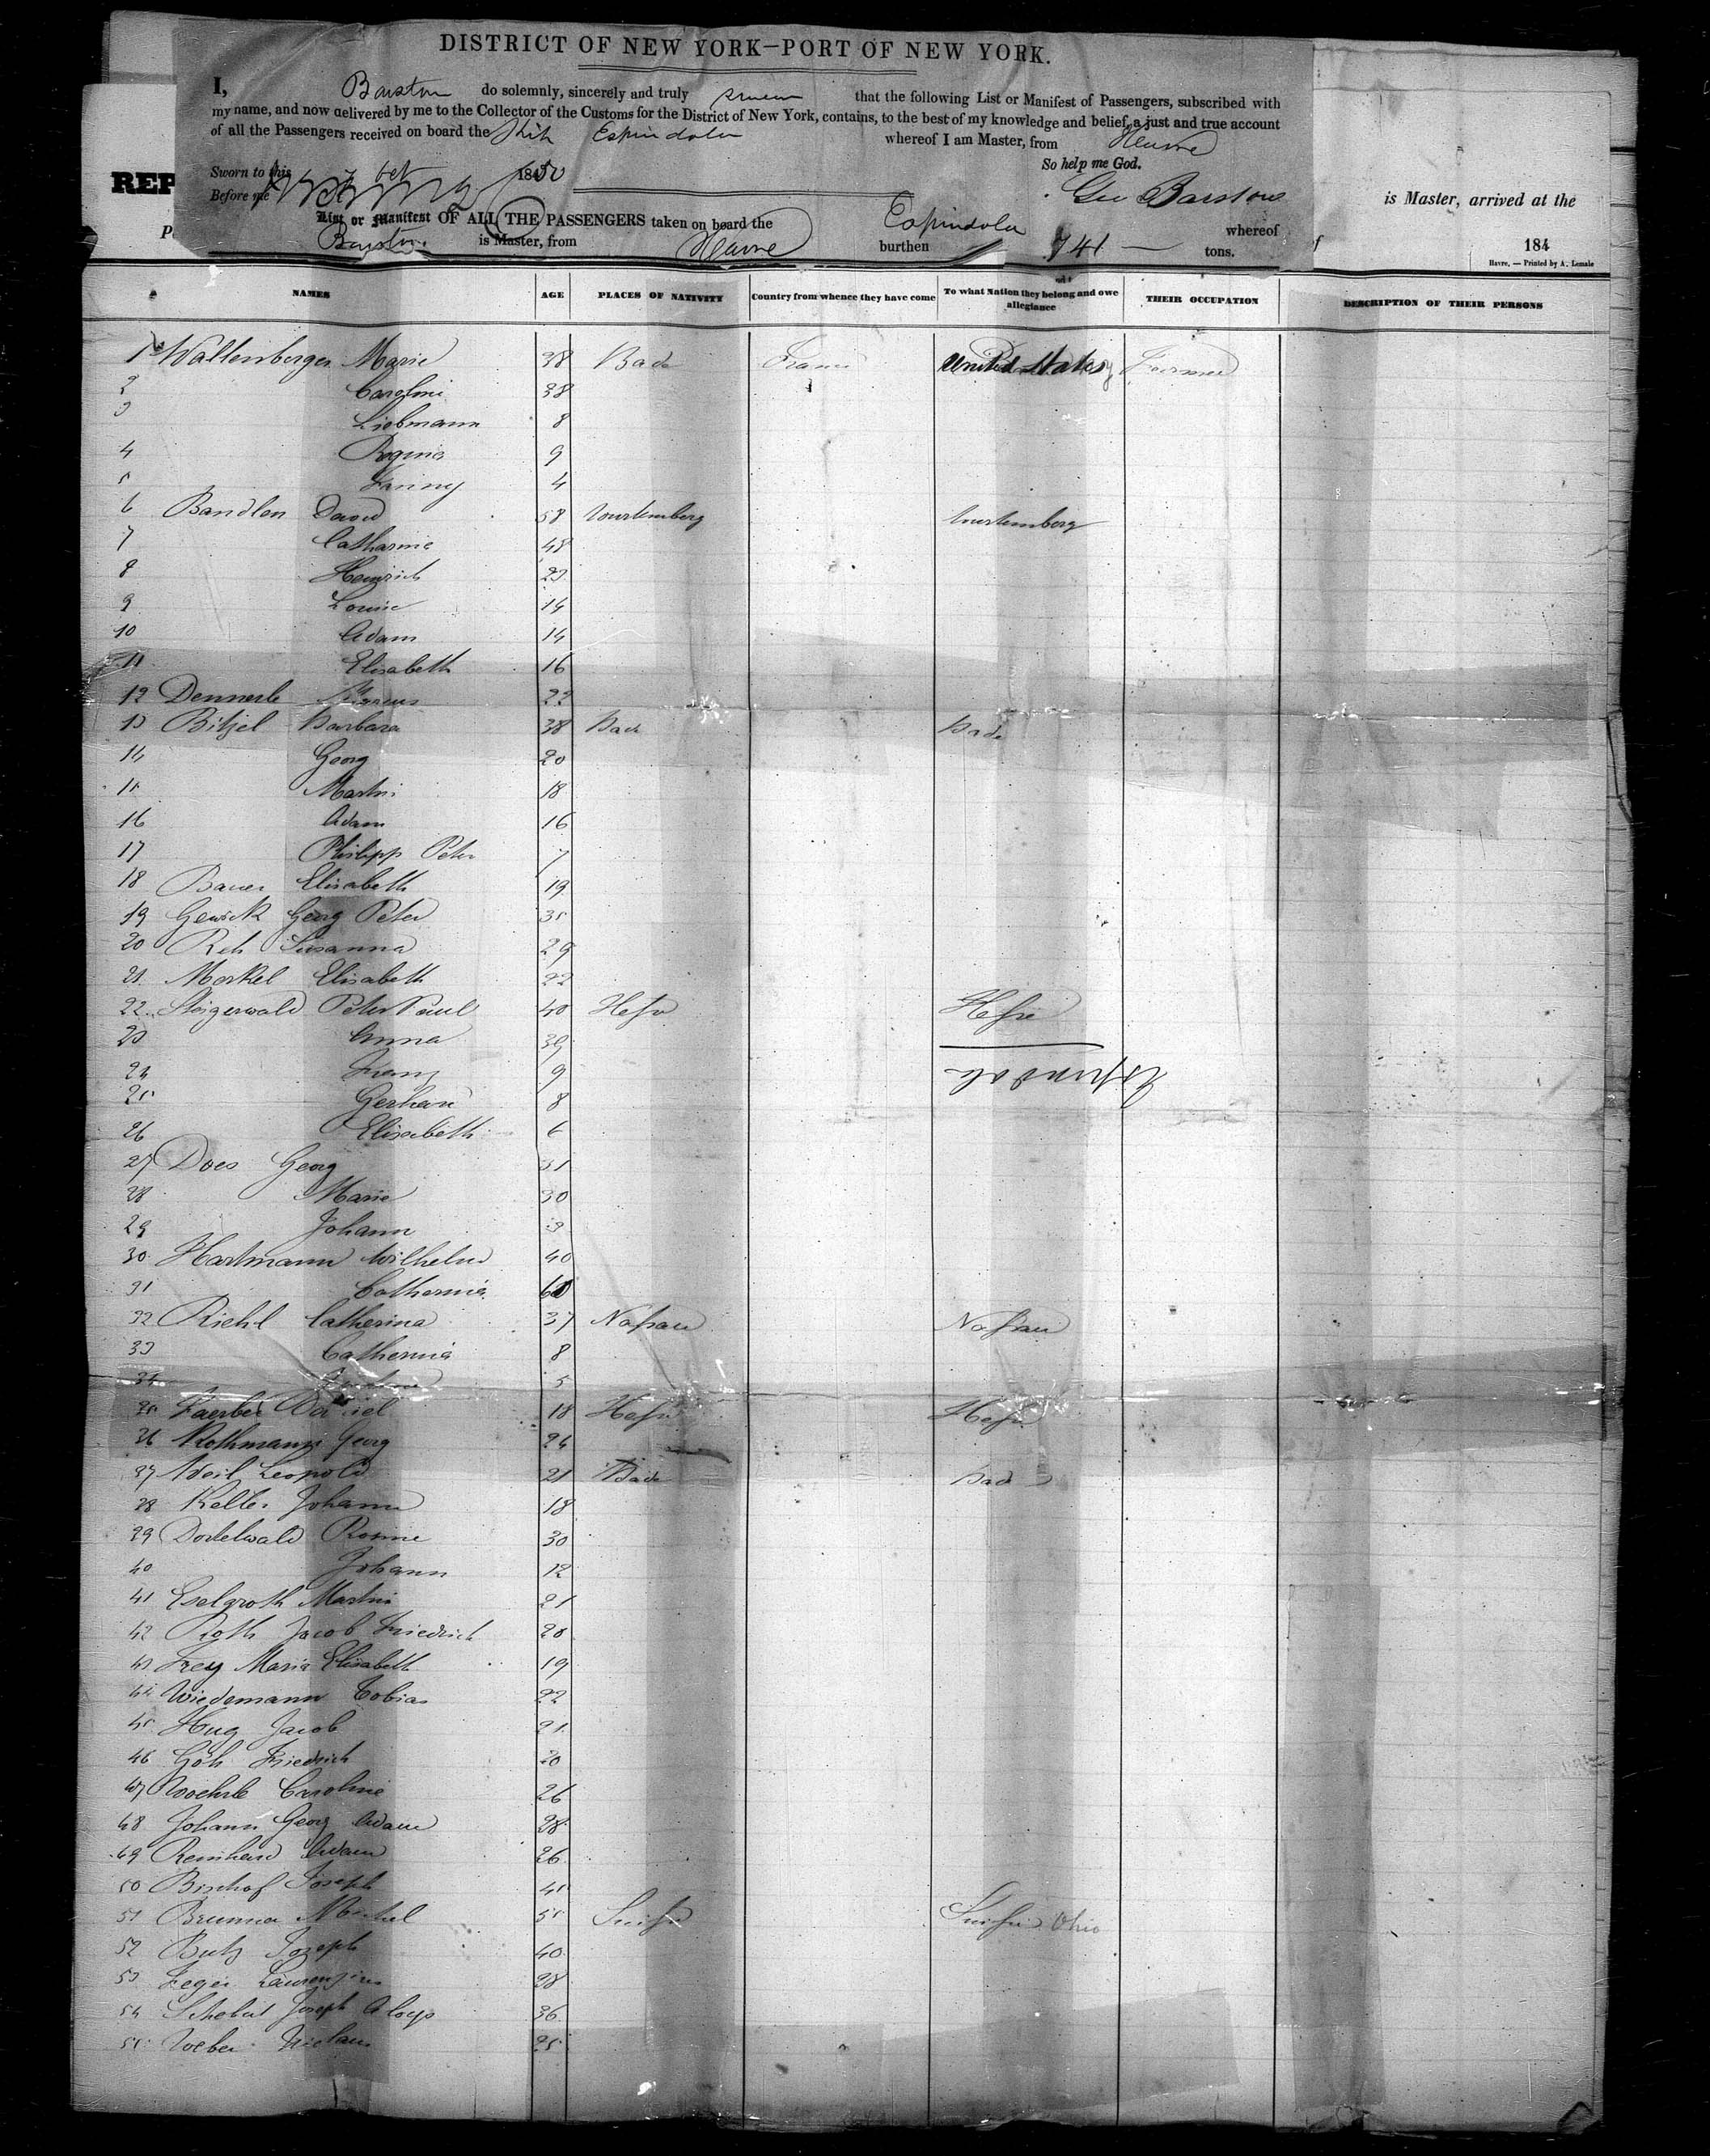 DISTRICT OF NEW YORK—PORT OF NEW YORK.
I, Barstow do solemnly, sincerely and truly swear that the following List or Manifest of Passengers, subscribed with
my name, and now delivered by me to the Collector of the Customs for the District of New York, contains, to the best of my knowledge and belief, a just and true account
of all the Passengers received on board the Ship Espindola whereof I am Master, from Havre
Sworn to this Oct 1850 So help me God.
Before me Geo Barstow
REP is Master, arrived at the
List or Manifest OF ALL THE PASSENGERS taken on board the Espindola whereof
Barstow is Master, from Havre burthen 741 tons.
184
Havre. — Printed by A. Lemale
NAMES AGE PLACES OF NATIVITY Country from whence they have come To what Nation they belong and owe allegiance THEIR OCCUPATION DESCRIPTION OF THEIR PERSONS
1 Wallenberger Marie 38 Bade France United States Farmer
2 Caroline 38
3 Liebmann 8
4 Regina 9
5 Fanny 4
6 Bandlen David 58 Wurtemberg Wurtemberg
7 Catharine 48
8 Heinrich 23
9 Louise 14
10 Adam 14
11 Elisabeth 16
12 Dennerle 22
13 Bitzel Barbara 38 Bade Bade
14 Georg 20
15 Martin 18
16 Adam 16
17 Philipp Peter 7
18 Bauer Elisabeth 19
19 Gewick Georg Peter 35
20 Reh Susanna 29
21 Morkel Elisabeth 22
22 Steigerwald Peter Paul 40 Hesse Hesse
23 Anna 39
24 Franz 9
Espindola
25 Gerhard 8
26 Elisabeth 6
27 Does Georg 31
28 Marie 30
29 Johann 3
30 Hartmann Wilhelm 40
31 Catherina 60
32 Riehl Catherina 37 Nassau Nassau
33 Catherina 8
34 5
35 Faerber Daniel 18 Hesse Hesse
36 Rothmann Georg 24
37 Weil Leopold 21 Bade Bade
38 Keller Johann 18
39 Dortelwald Rosine 30
40 Johann 12
41 Eselgroth Martin 21
42 Roth Jacob Friedrich 20
43 Frey Maria Elisabeth 19
44 Wiedemann Tobias 22
45 Hug Jacob 21
46 Göh Friedrich 20
47 Woehrle Caroline 26
48 Johann Georg Adam 28
49 Reinhard Adam 26
50 Bischof Joseph 45
51 Brunner Michel 55 Suisse Suisse Ohio
52 Butz Joseph 40
53 Feger Laurenzius 28
54 Schebat Joseph Aloys 36
55 Weber Niclaus 25